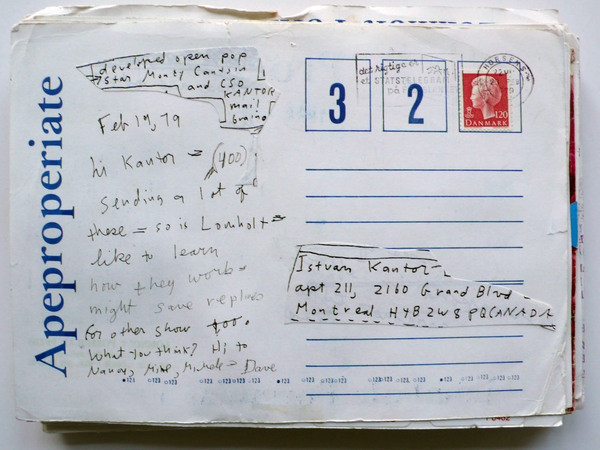 Apeproperiate
I developed open pop
star Monty Cantsin
and CSO
KANTOR
mail
brain
Feb 19, 79
hi Kantor = (400)
Sending a lot of
these = so is Lomholt =
like to learn
how they work =
might save replies
for other show too.
What you think? Hi to
Nancy, Mike, Michele = Dave
3 2
det rigtige er
et STATSTELEGRAM
på
HORSENS
120
DANMARK
Istvan Kantor
apt 211, 2160 Grand Blvd
Montreal H4B 2W8 PQ CANADA
123 123 123 123 123 123 123 123 123 123 123